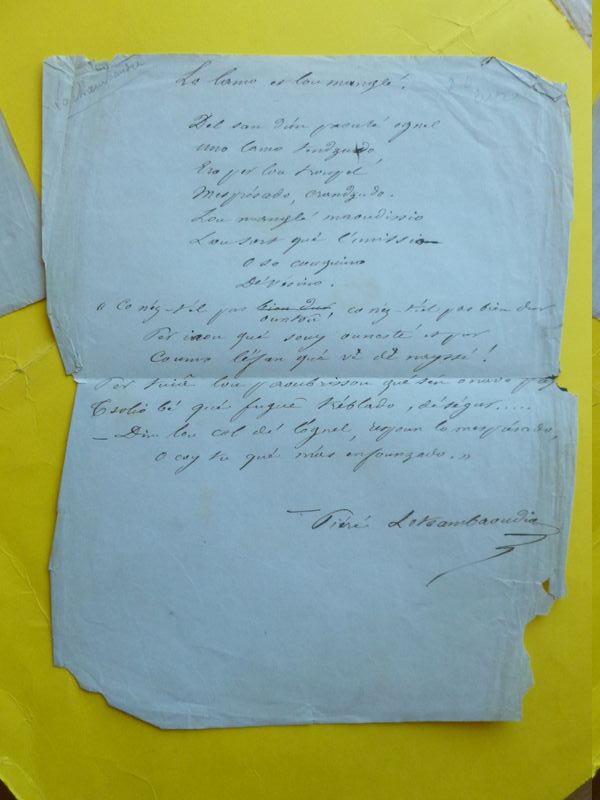 Lo lamo et lou manglé.
Del san d'un paouré ognel
uno lamo tendzudo
Ero per lou troupel
Mesprésado, crandzudo.
Lou manglé maoudissio
Lou sort qué l'emissio
O so couquino
Dévésino.
o Co n'éz-t-il pas bien dur
ountou! co n'éz-t-il pas bien dur
Per iaou qué souy ounesté et pur
Coumo l'éfan qué vé dé nayssé!
Per tuia lou paoubrissou que s'en onavo
Tsolio bé qué fugué, déségur....
— Din lou col dé l'ognel, respoun lo mesprésado,
O coy tu qué m'as enfounzado. »
— Piéré Lotsambaoudia